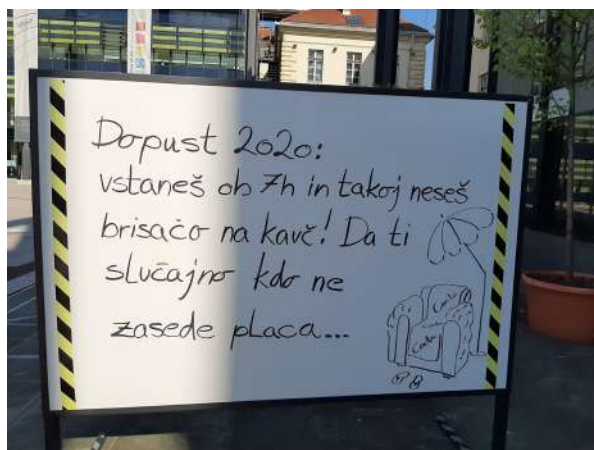 Dopust 2020:
vstaneš ob 7h in takoj neseš
brisačo na kavč! Da ti
slučajno kdo ne
zasede placa...